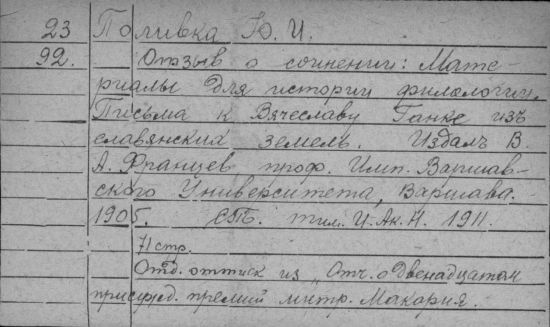 23 Поливка Ю. И.
92. Отзыв о сочинении: Мате-
риалы для истории филологии.
Письма к Вячеславу Ганке изъ
славянских земель. Издалъ В.
А. Францев проф. Имп. Варшав-
ского Университета, Варшава.
1905. СПБ. тип. И. Ак. Н. 1911.
71 стр.
Отд. оттиск из „Отч. о Двенадцатом
присужд. премий митр. Макария.